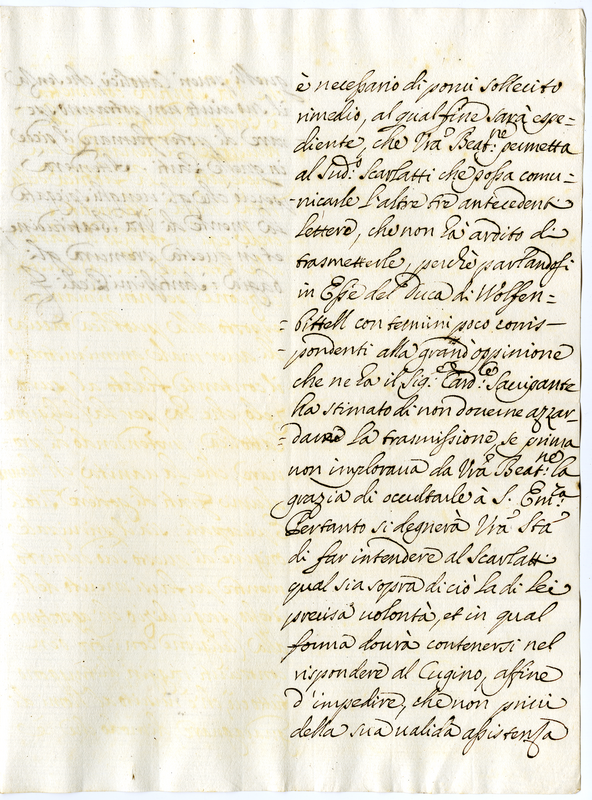 è necessario di porui sollecito
rimedio, al qual fine sarà espe=
diente, che Vrã Beat:ne permetta
al sud:o Scarlatti che possa comu=
nicarle l'altre tre antecedenti
lettere, che non hà ardito di
trasmetterle, perchè parlandosi
in Esse del Duca di Wolfen=
=bittell con termini poco corris=
pondenti alla grand'oppinione
che ne hà il Sig:r Card:le Sacripante
ha stimato di non douerne azzar=
=darne la trasmissione, se prima
non implorava da Vrã Beat:ne la
grazia di occultarle à S. Em:za
Pertanto si degnerà Vrã Stà
di far intendere al Scarlatti
qual sia sopra di ciò la di Lei
precisa volontà, et in qual
forma dourà contenersi nel
rispondere al Cugino, affine
d'impedire, che non priui
della sua valida assistenza